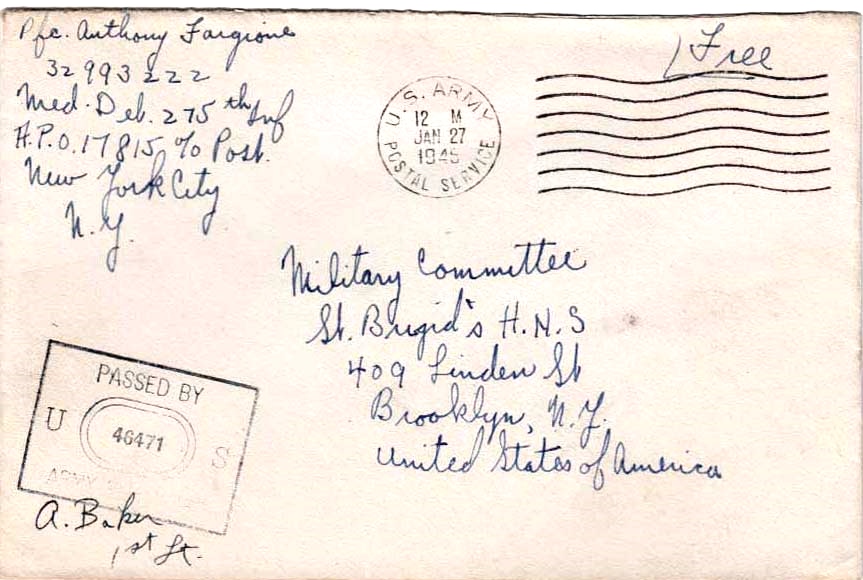 Pfc. Anthony Fargione
32993222
Med. Deb. 275th Inf
A.P.O. 17815, c/o Post.
New York City
N.Y.
Free
U.S. ARMY
12 M
JAN 27
1945
POSTAL SERVICE
Military Committee
St. Brigid's H.N.S
409 Linden St
Brooklyn, N.Y.
United States of America
PASSED BY
U 46471 S
ARMY
A. Baker
1st Lt.